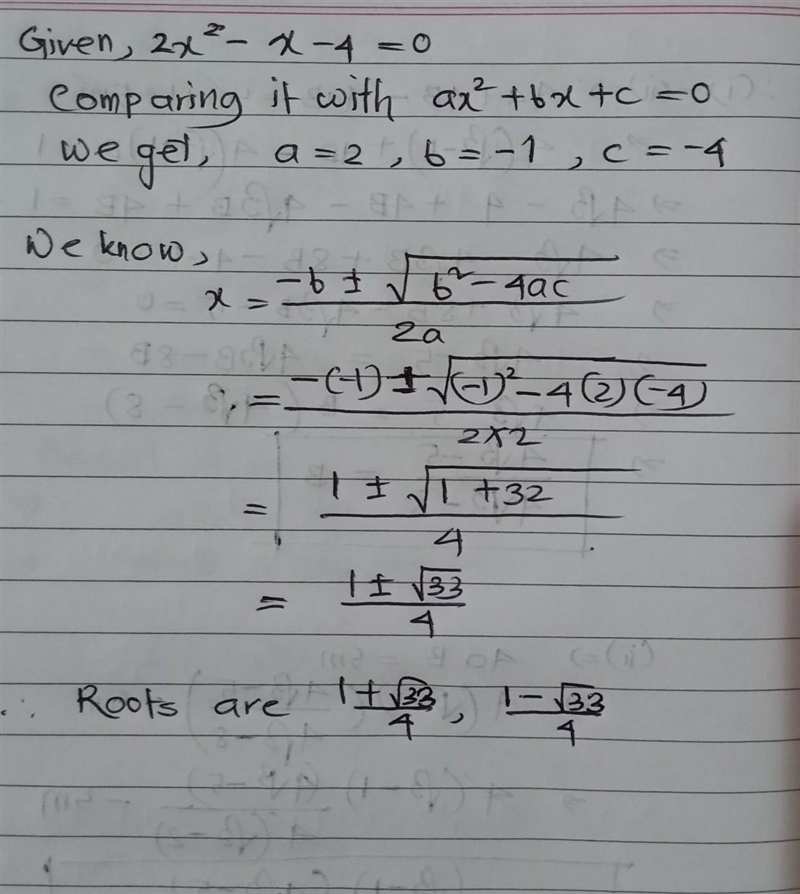 Given, 2x² - x - 4 = 0
Comparing it with ax² + bx + c = 0
We get, a = 2, b = -1, c = -4
We know,
x = (-b ± √(b² - 4ac)) / 2a
∴ = (-(-1) ± √((-1)² - 4(2)(-4))) / 2×2
= (1 ± √(1 + 32)) / 4
= (1 ± √33) / 4
∴ Roots are (1 + √33)/4, (1 - √33)/4